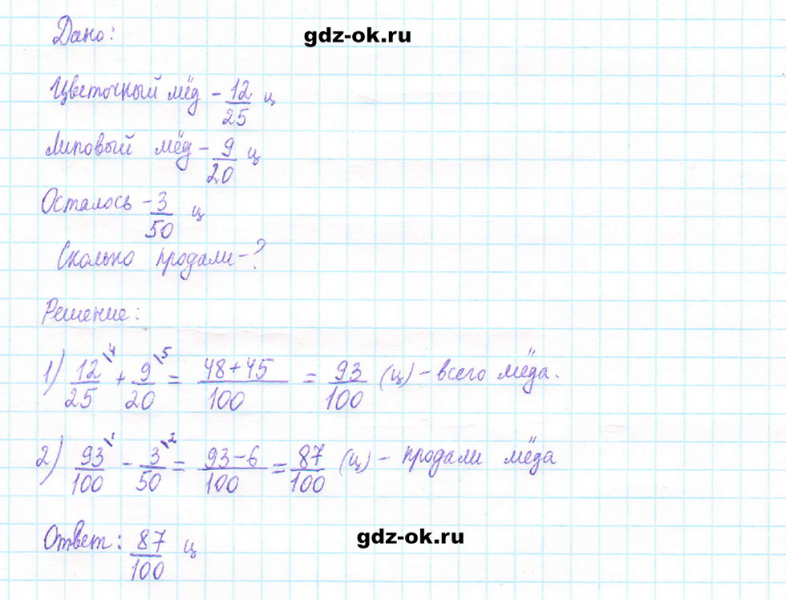 Дано: gdz-ok.ru
Цветочный мёд - 12/25 ц
Липовый мёд - 9/20 ц
Осталось - 3/50 ц
Сколько продали - ?
Решение:
1) 12/25 \4 + 9/20 \5 = 48+45/100 = 93/100 (ц) - всего мёда.
2) 93/100 \1 - 3/50 \2 = 93-6/100 = 87/100 (ц) - продали мёда
Ответ: 87/100 ц gdz-ok.ru